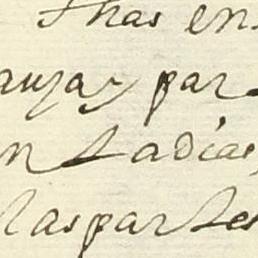 thas en
auzar par
n tadias,
laspartes